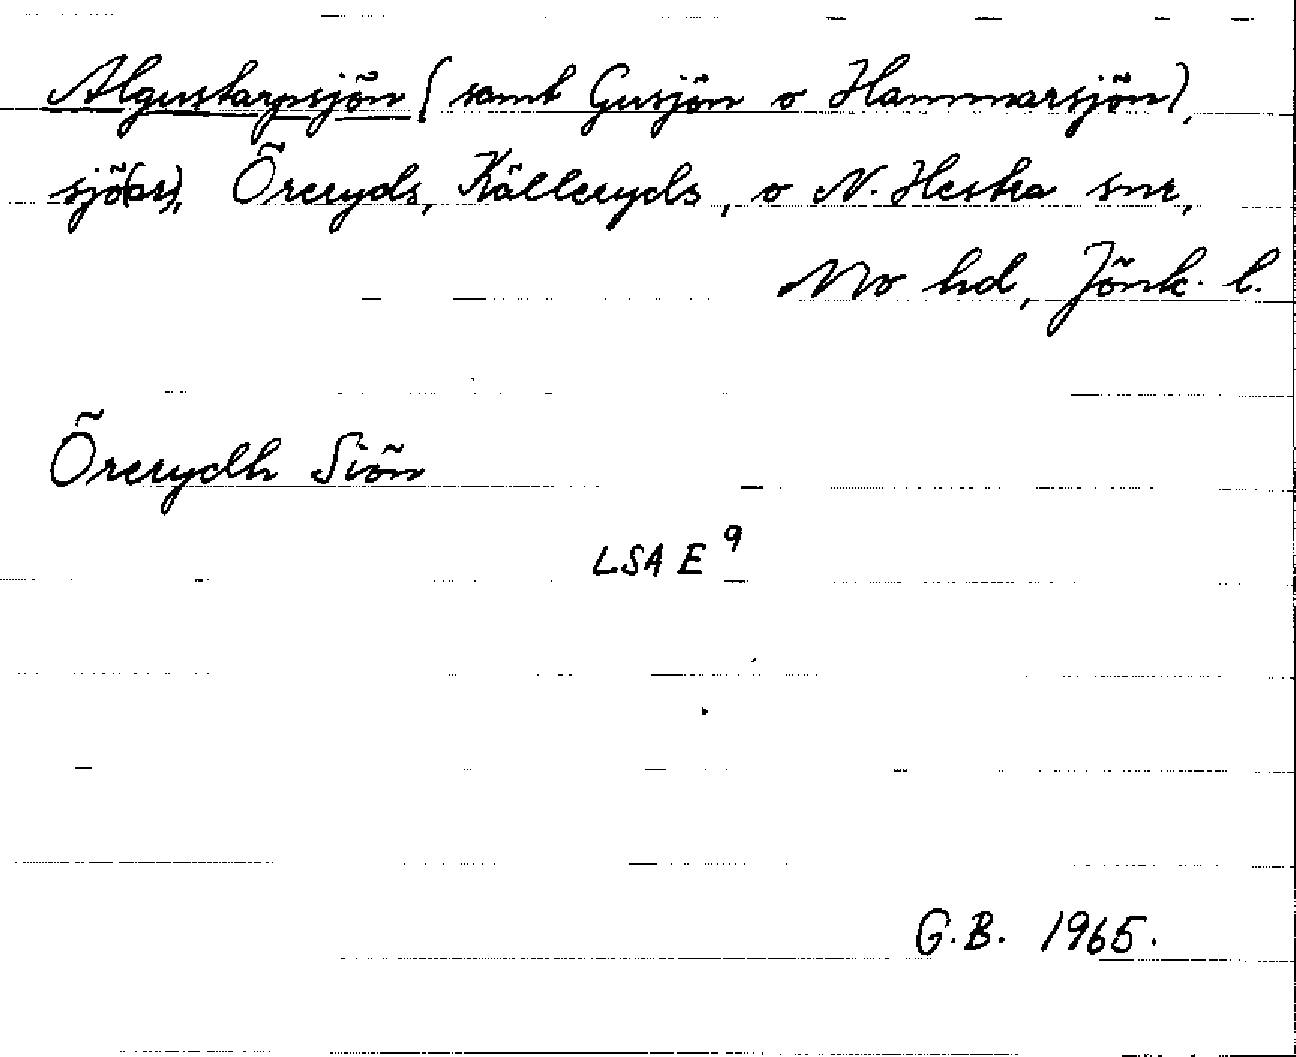 Algustarpsjön (samt Gusjön o Hammarsjön),
sjö(ar), Öreryds, Kålleryds, o N. Hestra snr,
Mo hd, Jönk. l.
Örerydh Siön
LSA E 9
G.B. 1965.